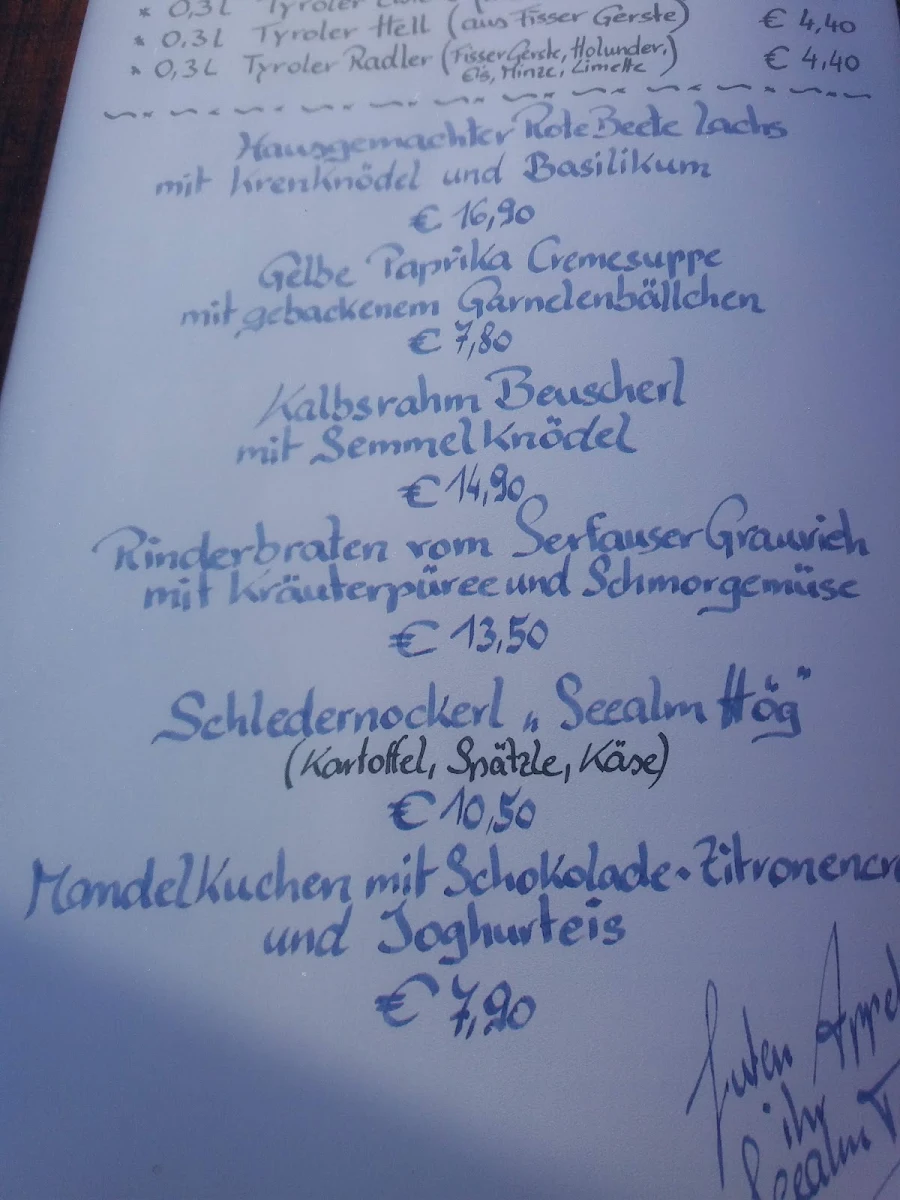 * 0,3L Tyroler
* 0,3L Tyroler Hell (aus Fisser Gerste) € 4,40
* 0,3L Tyroler Radler (Fisser Gerste, Holunder, € 4,40
Eis, Minze, Limette)
Hausgemachter Rote Beete Lachs
mit Krenknödel und Basilikum
€ 16,90
Gelbe Paprika Cremesuppe
mit gebackenem Garnelenbällchen
€ 7,80
Kalbsrahm Beuscherl
mit Semmelknödel
€ 14,90
Rinderbraten vom Serfauser Grauvieh
mit Kräuterpüree und Schmorgemüse
€ 13,50
Schledernockerl „Seealm Hög"
(Kartoffel, Spätzle, Käse)
€ 10,50
Mandelkuchen mit Schokolade-Zitronencr
und Joghurteis
€ 7,90
Guten Appe
ihr
Seealm T